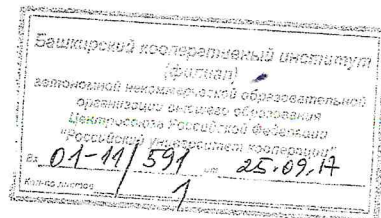 Башкирский кооперативный институт
(филиал)
автономной некоммерческой образовательной
организации высшего образования
Центросоюза Российской Федерации
"Российский университет кооперации"
Вх. 01-11/591 от 25.09.17
Кол-во листов 1